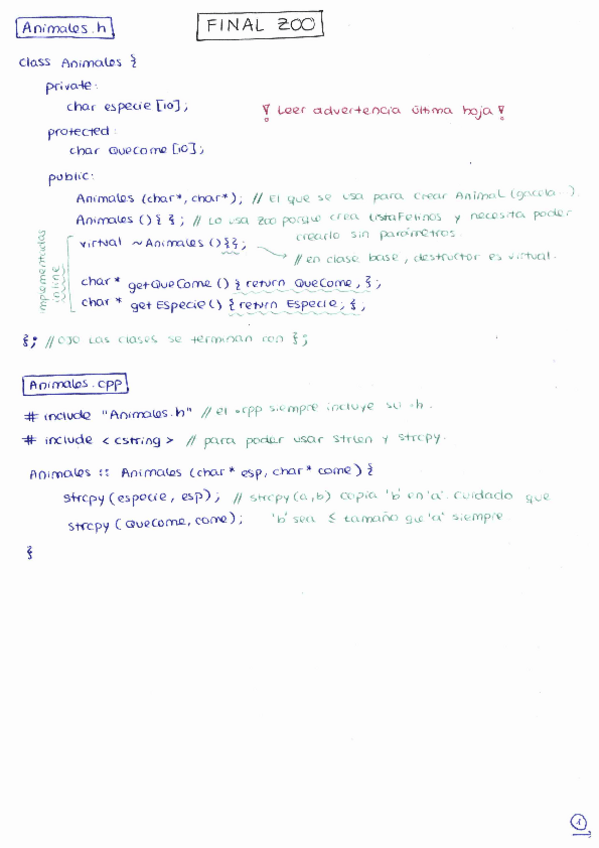 Animales.h
FINAL ZOO
class Animales {
private:
char especie [10];
! Leer advertencia última hoja !
protected:
char QueCome [10];
public:
Animales (char*, char*); // el que se usa para crear Animal (gacela...).
Animales () { } ; // Lo usa zoo porque crea ListaFelinos y necesita poder
crearlo sin parámetros.
virtual ~Animales () {};
// en clase base, destructor es virtual.
implementadas
inline
char* getQueCome () { return QueCome, };
char* getEspecie() { return Especie; },
}; // OJO Las clases se terminan con } ;
Animales.cpp
# include "Animales.h" // el .cpp siempre incluye su .h.
# include < cstring > // para poder usar strlen y strcpy.
Animales :: Animales (char* esp, char* come) {
strcpy (especie, esp); // strcpy(a,b) copia 'b' en 'a'. cuidado que
strcpy ( QueCome, come); 'b' sea ≤ tamaño que 'a' siempre
}
1